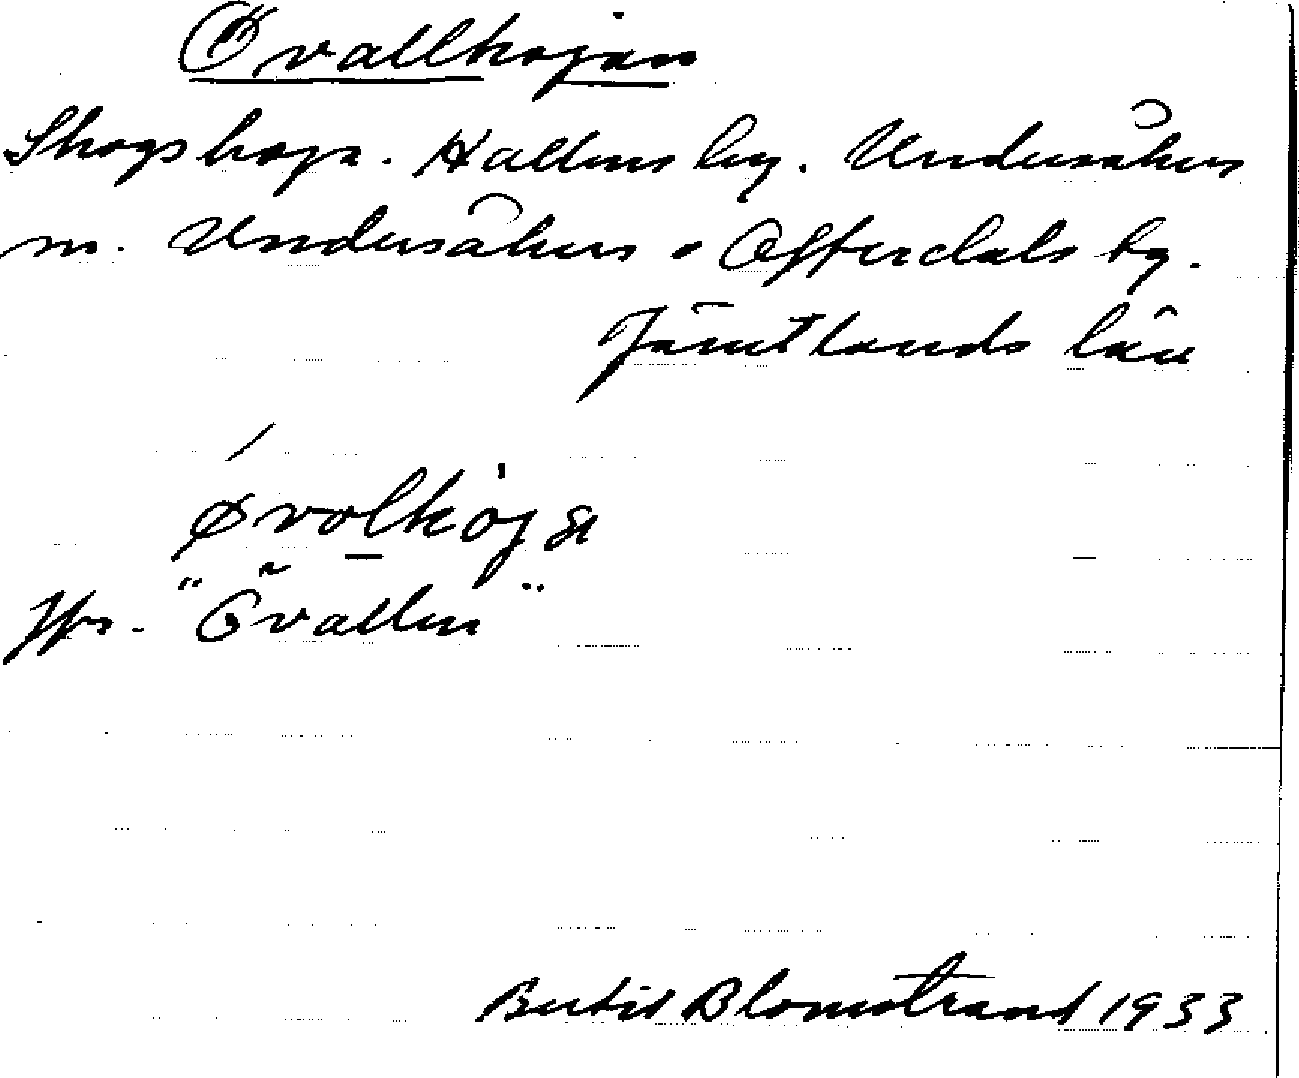 Övallkojan
Skogskoja. Hallens by. Undersåkers
m. Undersåkers o Offerdals tg.
Jämtlands län
øvolkòjæ
Jfr. "Övallen"
Bertil Blomstrand 1933